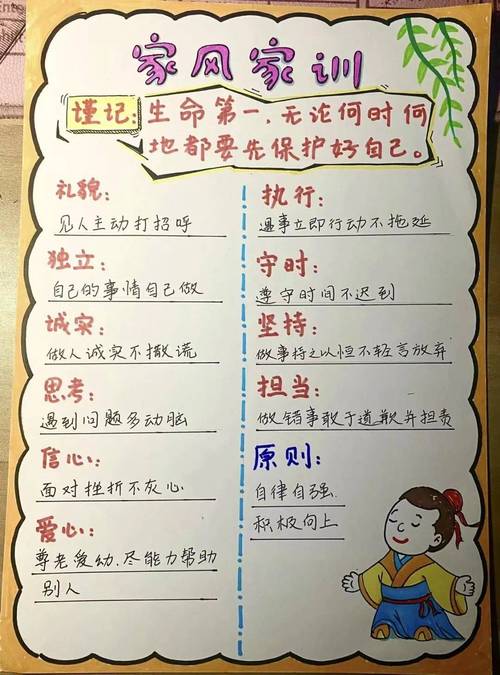 家风家训
谨记:生命第一,无论何时何
地都要先保护好自己。
礼貌:
见人主动打招呼
独立:
自己的事情自己做
诚实:
做人诚实不撒谎
思考:
遇到问题多动脑
信心:
面对挫折不灰心
爱心:
尊老爱幼、尽能力帮助
别人
执行:
遇事立即行动不拖延
守时:
遵守时间不迟到
坚持:
做事持之以恒不轻言放弃
担当:
做错事敢于道歉并担责
原则:
自律自强
积极向上